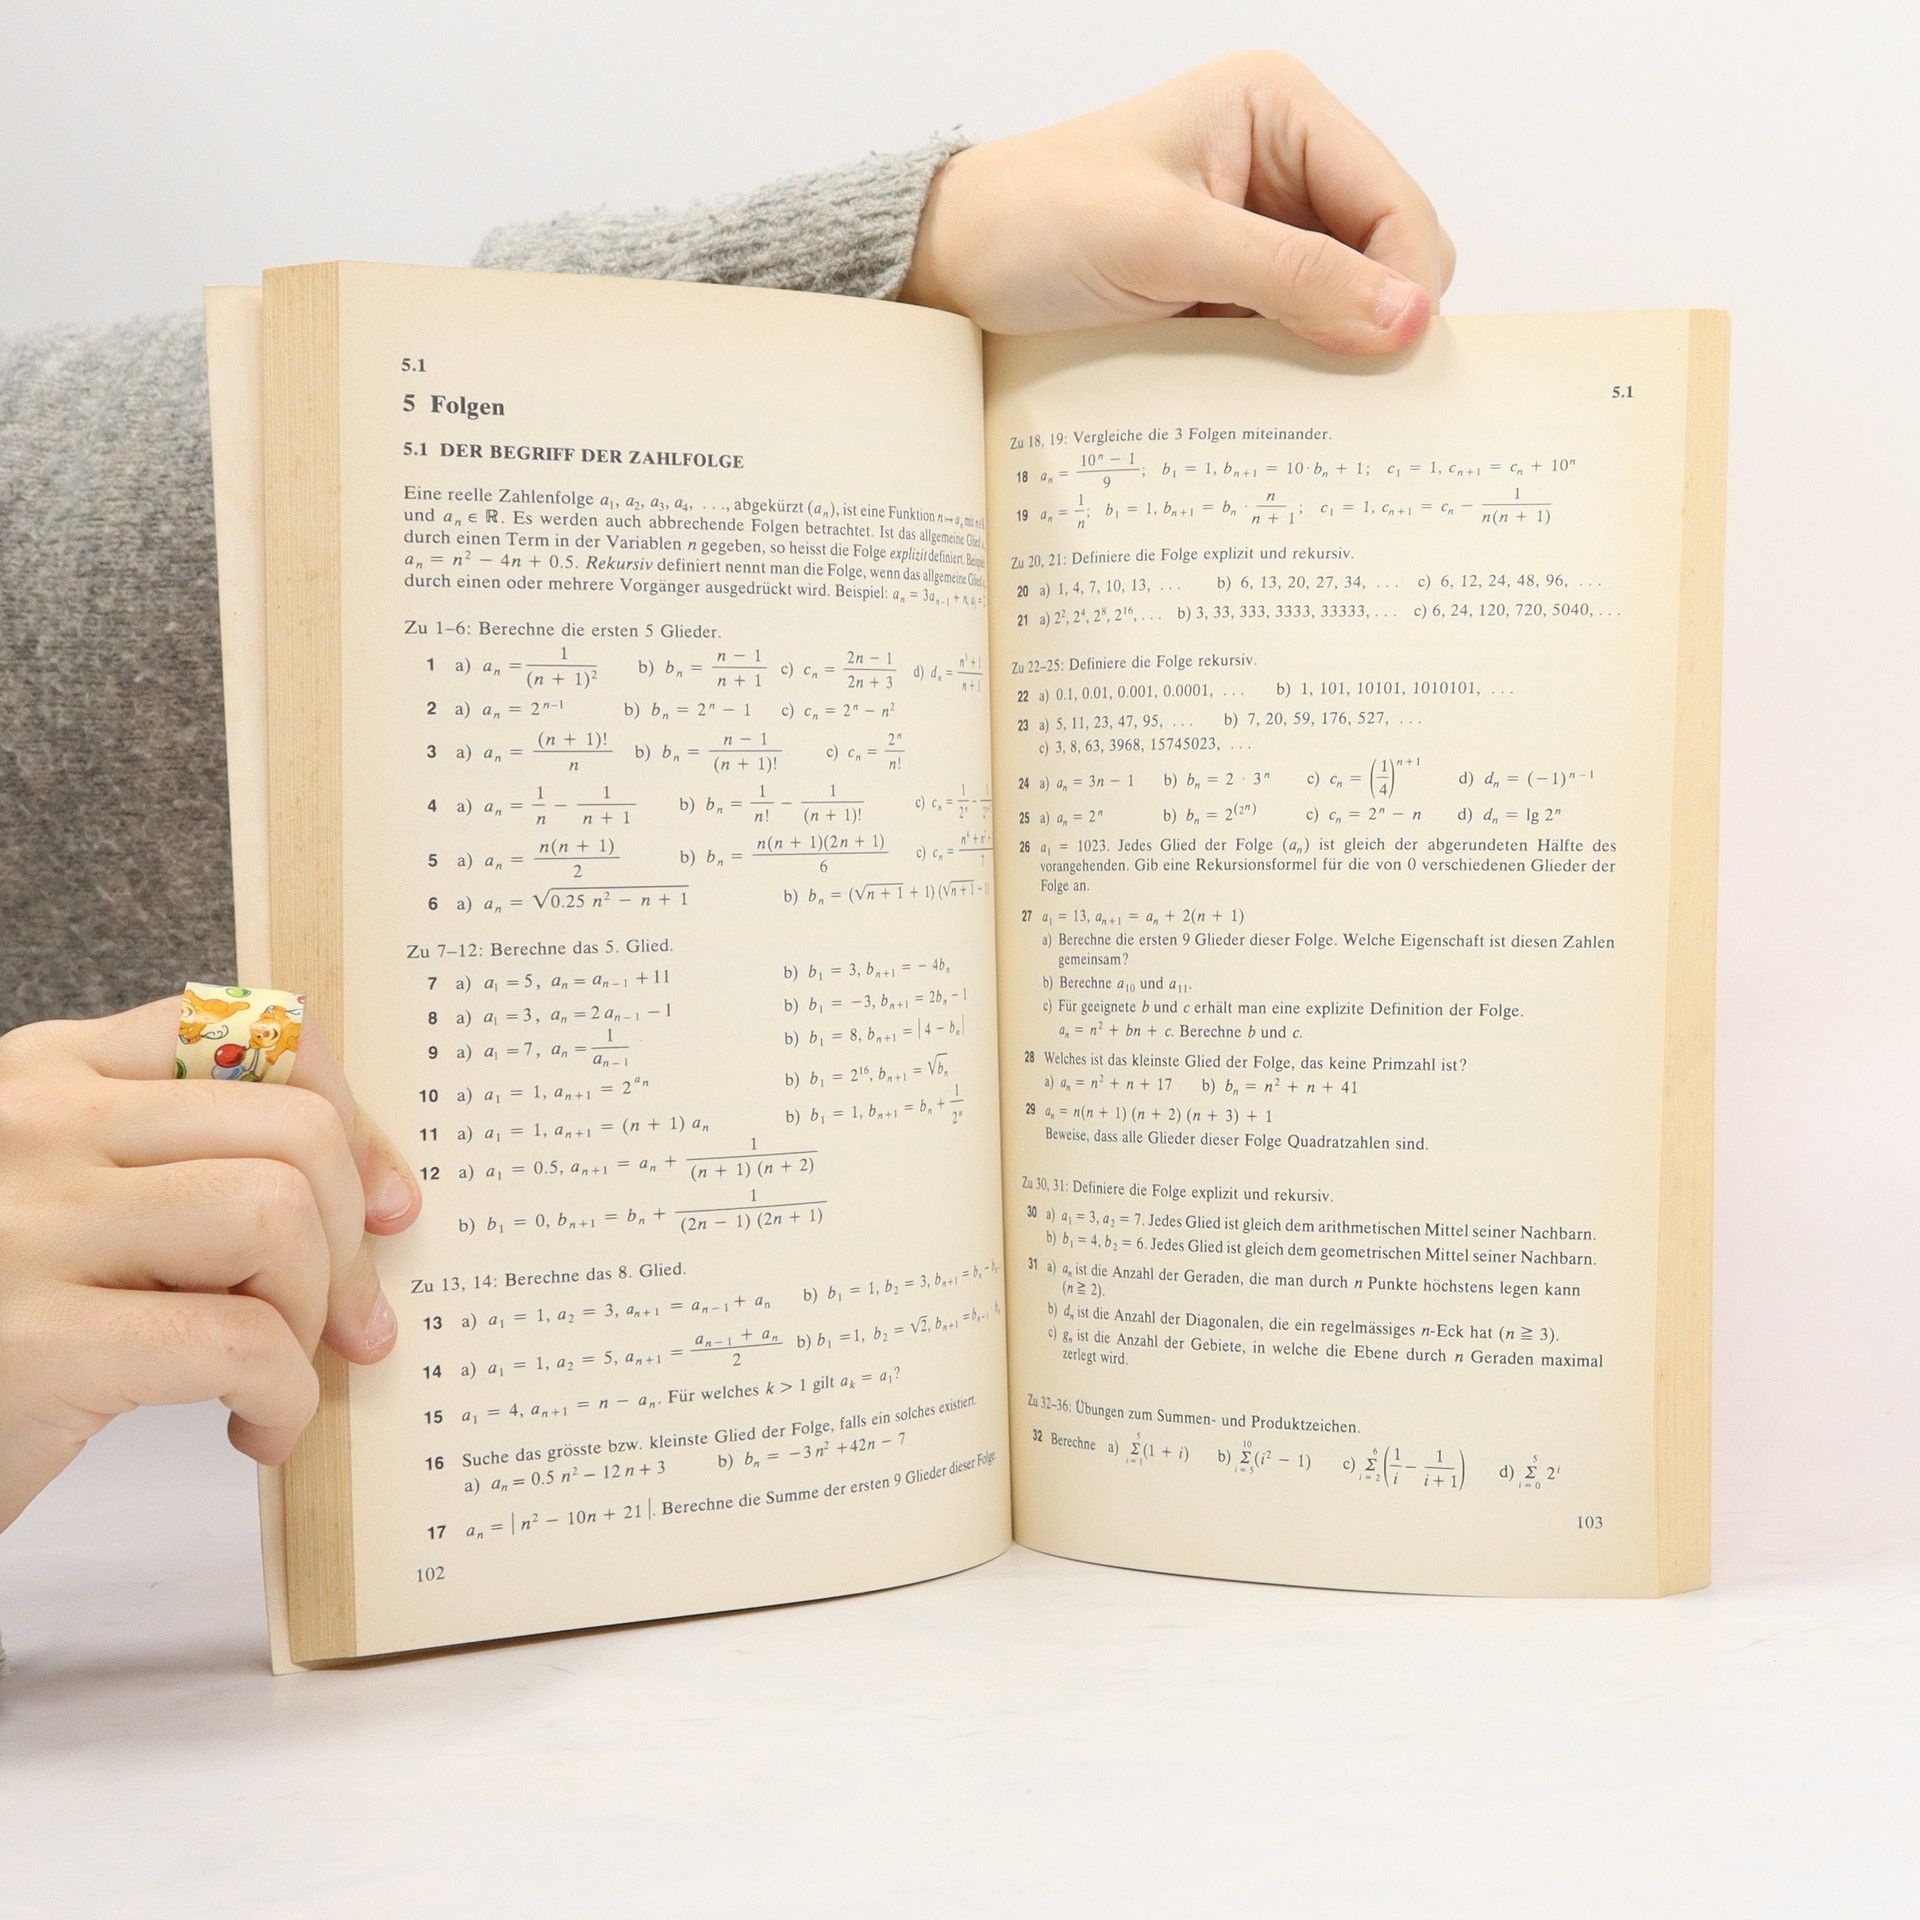 5.1
5 Folgen
5.1 DER BEGRIFF DER ZAHLFOLGE
Eine reelle Zahlenfolge a₁, a₂, a₃, a₄, . . ., abgekürzt (aₙ), ist eine Funktion n ↦ aₙ mit
und aₙ ∈ ℝ. Es werden auch abbrechende Folgen betrachtet. Ist das allgemeine Glied
durch einen Term in der Variablen n gegeben, so heisst die Folge explizit definiert. Beispiel
aₙ = n² − 4n + 0.5. Rekursiv definiert nennt man die Folge, wenn das allgemeine Glied
durch einen oder mehrere Vorgänger ausgedrückt wird. Beispiel: aₙ = 3aₙ₋₁ + n, a₁ =
Zu 1–6: Berechne die ersten 5 Glieder.
1 a) aₙ = 1/(n + 1)² b) bₙ = (n − 1)/(n + 1) c) cₙ = (2n − 1)/(2n + 3) d) dₙ =
2 a) aₙ = 2ⁿ⁻¹ b) bₙ = 2ⁿ − 1 c) cₙ = 2ⁿ − n²
3 a) aₙ = (n + 1)!/n b) bₙ = (n − 1)/(n + 1)! c) cₙ = 2ⁿ/n!
4 a) aₙ = 1/n − 1/(n + 1) b) bₙ = 1/n! − 1/(n + 1)! c) cₙ =
5 a) aₙ = n(n + 1)/2 b) bₙ = n(n + 1)(2n + 1)/6 c) cₙ =
6 a) aₙ = √(0.25 n² − n + 1) b) bₙ = (√(n + 1) + 1)(√(n + 1) −
Zu 7–12: Berechne das 5. Glied.
7 a) a₁ = 5, aₙ = aₙ₋₁ + 11 b) b₁ = 3, bₙ₊₁ = − 4bₙ
8 a) a₁ = 3, aₙ = 2 aₙ₋₁ − 1 b) b₁ = −3, bₙ₊₁ = 2bₙ − 1
9 a) a₁ = 7, aₙ = 1/aₙ₋₁ b) b₁ = 8, bₙ₊₁ = |4 − bₙ|
10 a) a₁ = 1, aₙ₊₁ = 2^(aₙ) b) b₁ = 2¹⁶, bₙ₊₁ = √bₙ
11 a) a₁ = 1, aₙ₊₁ = (n + 1) aₙ b) b₁ = 1, bₙ₊₁ = bₙ + 1/2ⁿ
12 a) a₁ = 0.5, aₙ₊₁ = aₙ + 1/((n + 1) (n + 2))
b) b₁ = 0, bₙ₊₁ = bₙ + 1/((2n − 1) (2n + 1))
Zu 13, 14: Berechne das 8. Glied.
13 a) a₁ = 1, a₂ = 3, aₙ₊₁ = aₙ₋₁ + aₙ b) b₁ = 1, b₂ = 3, bₙ₊₁ = bₙ −
14 a) a₁ = 1, a₂ = 5, aₙ₊₁ = (aₙ₋₁ + aₙ)/2 b) b₁ = 1, b₂ = √2, bₙ₊₁ = bₙ₋₁
15 a₁ = 4, aₙ₊₁ = n − aₙ. Für welches k > 1 gilt aₖ = a₁?
16 Suche das grösste bzw. kleinste Glied der Folge, falls ein solches existiert.
a) aₙ = 0.5 n² − 12 n + 3 b) bₙ = −3 n² + 42n − 7
17 aₙ = |n² − 10n + 21|. Berechne die Summe der ersten 9 Glieder dieser Folge.
102
5.1
Zu 18, 19: Vergleiche die 3 Folgen miteinander.
18 aₙ = (10ⁿ − 1)/9; b₁ = 1, bₙ₊₁ = 10·bₙ + 1; c₁ = 1, cₙ₊₁ = cₙ + 10ⁿ
19 aₙ = 1/n; b₁ = 1, bₙ₊₁ = bₙ · n/(n + 1); c₁ = 1, cₙ₊₁ = cₙ − 1/(n(n + 1))
Zu 20, 21: Definiere die Folge explizit und rekursiv.
20 a) 1, 4, 7, 10, 13, . . . b) 6, 13, 20, 27, 34, . . . c) 6, 12, 24, 48, 96, . . .
21 a) 2², 2⁴, 2⁸, 2¹⁶, . . . b) 3, 33, 333, 3333, 33333, . . . c) 6, 24, 120, 720, 5040, . . .
Zu 22–25: Definiere die Folge rekursiv.
22 a) 0.1, 0.01, 0.001, 0.0001, . . . b) 1, 101, 10101, 1010101, . . .
23 a) 5, 11, 23, 47, 95, . . . b) 7, 20, 59, 176, 527, . . .
c) 3, 8, 63, 3968, 15745023, . . .
24 a) aₙ = 3n − 1 b) bₙ = 2 · 3ⁿ c) cₙ = (1/4)ⁿ⁺¹ d) dₙ = (−1)ⁿ⁻¹
25 a) aₙ = 2ⁿ b) bₙ = 2^(2ⁿ) c) cₙ = 2ⁿ − n d) dₙ = lg 2ⁿ
26 a₁ = 1023. Jedes Glied der Folge (aₙ) ist gleich der abgerundeten Hälfte des
vorangehenden. Gib eine Rekursionsformel für die von 0 verschiedenen Glieder der
Folge an.
27 a₁ = 13, aₙ₊₁ = aₙ + 2(n + 1)
a) Berechne die ersten 9 Glieder dieser Folge. Welche Eigenschaft ist diesen Zahlen
gemeinsam?
b) Berechne a₁₀ und a₁₁.
c) Für geeignete b und c erhält man eine explizite Definition der Folge.
aₙ = n² + bn + c. Berechne b und c.
28 Welches ist das kleinste Glied der Folge, das keine Primzahl ist?
a) aₙ = n² + n + 17 b) bₙ = n² + n + 41
29 aₙ = n(n + 1) (n + 2) (n + 3) + 1
Beweise, dass alle Glieder dieser Folge Quadratzahlen sind.
Zu 30, 31: Definiere die Folge explizit und rekursiv.
30 a) a₁ = 3, a₂ = 7. Jedes Glied ist gleich dem arithmetischen Mittel seiner Nachbarn.
b) b₁ = 4, b₂ = 6. Jedes Glied ist gleich dem geometrischen Mittel seiner Nachbarn.
31 a) aₙ ist die Anzahl der Geraden, die man durch n Punkte höchstens legen kann
(n ≧ 2).
b) dₙ ist die Anzahl der Diagonalen, die ein regelmässiges n-Eck hat (n ≧ 3).
c) gₙ ist die Anzahl der Gebiete, in welche die Ebene durch n Geraden maximal
zerlegt wird.
Zu 32–36: Übungen zum Summen- und Produktzeichen.
32 Berechne a) ∑_{i=1}^{5} (1 + i) b) ∑_{i=5}^{10} (i² − 1) c) ∑_{i=2}^{6} (1/i − 1/(i + 1)) d) ∑_{i=0}^{5} 2ⁱ
103